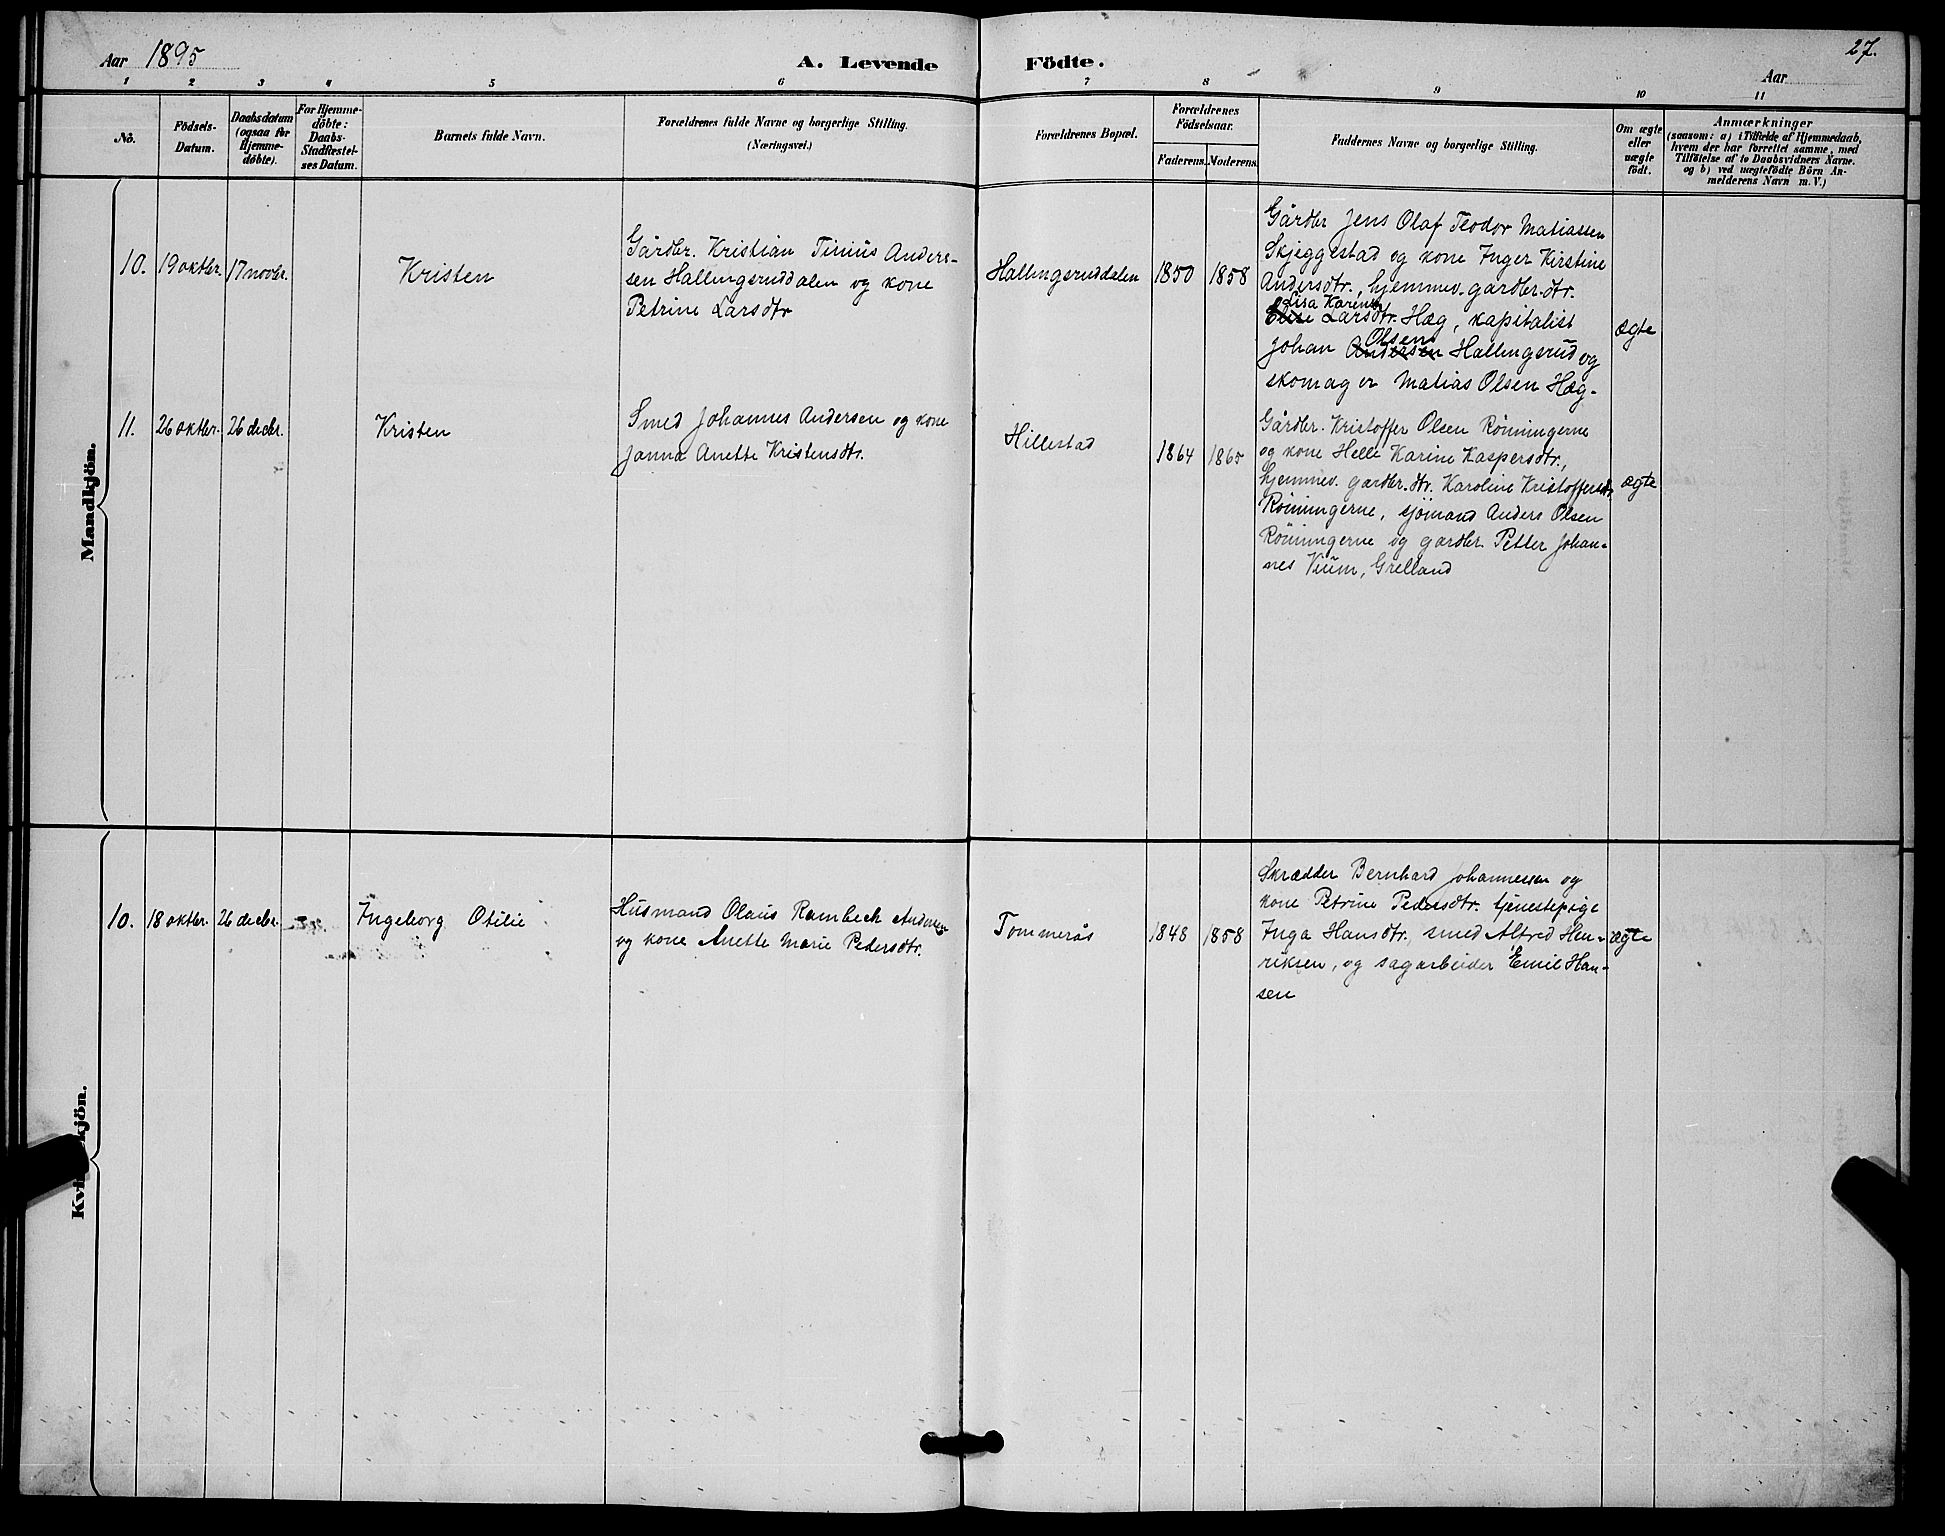 Aar 1895
A. Levende Födte.
Aar
27.
1 2 3 4 5 6 7 8 9 10 11
No.
Födsels-
Datum.
Daabsdatum
(ogsaa for
Hjemme-
döbte).
For Hjemme-
döbte:
Daabs-
Stadfæstel-
ses Datum.
Barnets fulde Navn.
Forældrenes fulde Navne og borgerlige Stilling.
(Næringsvei.)
Forældrenes Bopæl.
Forældrenes
Födselsaar.
Faderens. Moderens.
Faddernes Navne og borgerlige Stilling.
Om ægte
eller
uægte
födt.
Anmærkninger
(saasom: a) i Tilfælde af Hjemmedaab,
hvem der har forrettet samme, med
Tilföielse af to Daabsvidners Navne.
og b) ved uægtefödte Börn An-
melderens Navn m. V.)
Mandkjön.
10. 19 oktbr. 17 novbr.
Kristen
Gårdbr. Kristian Tinius Ander-
sen Hallingsruddalen og kone
Petrine Larsdtr
Hallingsruddalen
1850 1858
Gårdbr Jens Olaf Teodor Matiassen
Skjeggestad og kone Inger Kirstine
Andersdtr., hjemmev. gårdbr. dtr.
Lisa Karine
Elise Larsdtr. Hæg, kapitalist
Olsen
Johan Andersen Hallingsrud og
skomager Matias Olsen Hæg.
ægte
11. 26 oktbr. 26 decbr.
Kristen
Smed Johannes Andersen og kone
Janna Anette Kristensdtr.
Hillestad
1864 1865
Gårdbr. Kristoffer Olsen Rønningerne
og kone Helle Karine Kaspersdtr.,
hjemmev. gardbr. dtr. Karoline Kristoffersdtr
Rønningerne, sjømand Anders Olsen
Rønningerne og gardbr. Petter Johan-
nes Vium, Grelland
ægte
10. 18 oktbr. 26 decbr.
Ingeborg Otilie
Husmand Olaus Rambech Andersen
og kone Anette Marie Pedersdtr.
Tommerås
1848 1858
Skrædder Bernhard Johannessen og
kone Petrine Pedersdtr. tjenestepige
Inga Hansdtr., smed Alfred Hen-
riksen, og sagarbeider Emil Han-
sen
ægte